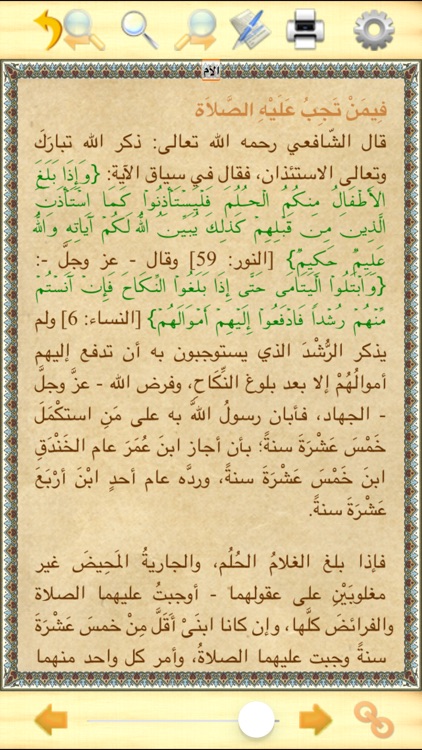 الأم
فِيمَنْ تَجِبُ عَلَيْهِ الصَّلَاة
قال الشّافعي رحمه الله تعالى: ذكر الله تبارَكَ
وتعالى الاستئذان، فقال في سياق الآية: {وَإِذَا بَلَغَ
الأَطْفَالُ مِنكُمُ الْحُلُمَ فَلْيَسْتَأْذِنُوا كَمَا اسْتَأْذَنَ
الَّذِينَ مِن قَبْلِهِمْ كَذَلِكَ يُبَيِّنُ اللهُ لَكُمْ آيَاتِهِ وَاللهُ
عَلِيمٌ حَكِيمٌ} [النور: 59] وقال - عز وجلَّ -:
{وَابْتَلُوا الْيَتَامَى حَتَّى إِذَا بَلَغُوا النِّكَاحَ فَإِنْ آنَسْتُم
مِّنْهُمْ رُشْداً فَادْفَعُوا إِلَيْهِمْ أَمْوَالَهُمْ} [النساء: 6] ولم
يذكر الرُّشْدَ الذي يستوجبون به أن تدفع إليهم
أموالُهُمْ إلا بعد بلوغ النِّكَاحِ، وفرض الله - عزَّ وجلَّ
- الجهاد، فأبان رسولُ اللَّه به على مَنِ استكْمَلَ
خَمْسَ عَشْرَةَ سنةً؛ بأن أجاز ابنَ عُمَرَ عام الخَنْدَقِ
ابنَ خَمْسَ عَشْرَةَ سنةً، ورده عام أحدٍ ابْنَ أرْبَعَ
عَشْرَةَ سنةً.
فإذا بلغ الغلامُ الحُلُم، والجاريةُ المَحِيضَ غير
مغلوبَيْنِ على عقولهما - أوجبتُ عليهما الصلاة
والفرائضَ كلَّها، وإن كانا ابنَىْ أَقَلَّ مِنْ خمسَ عَشْرَةَ
سنةً وجبت عليهما الصلاةُ، وأمر كل واحد منهما